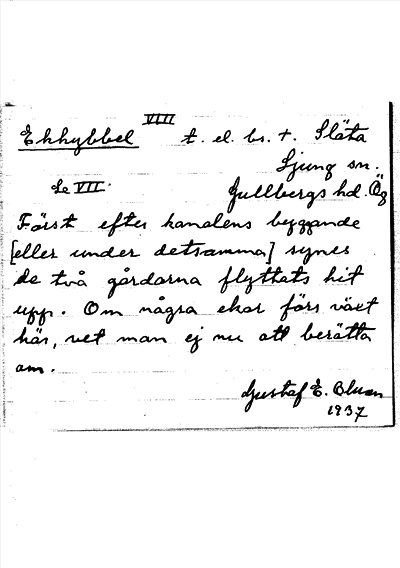 VIII
Ekhybbel t. el. bs. t. Släta
Ljung sn.
Se VII. Gullbergs hd. Ög
Först efter kanalens byggande
[eller under detsamma] synes
de två gårdarna flyttats hit
upp. Om några ekar förs växt
här, vet man ej nu att berätta
om.
Gustaf E. Blu
1937